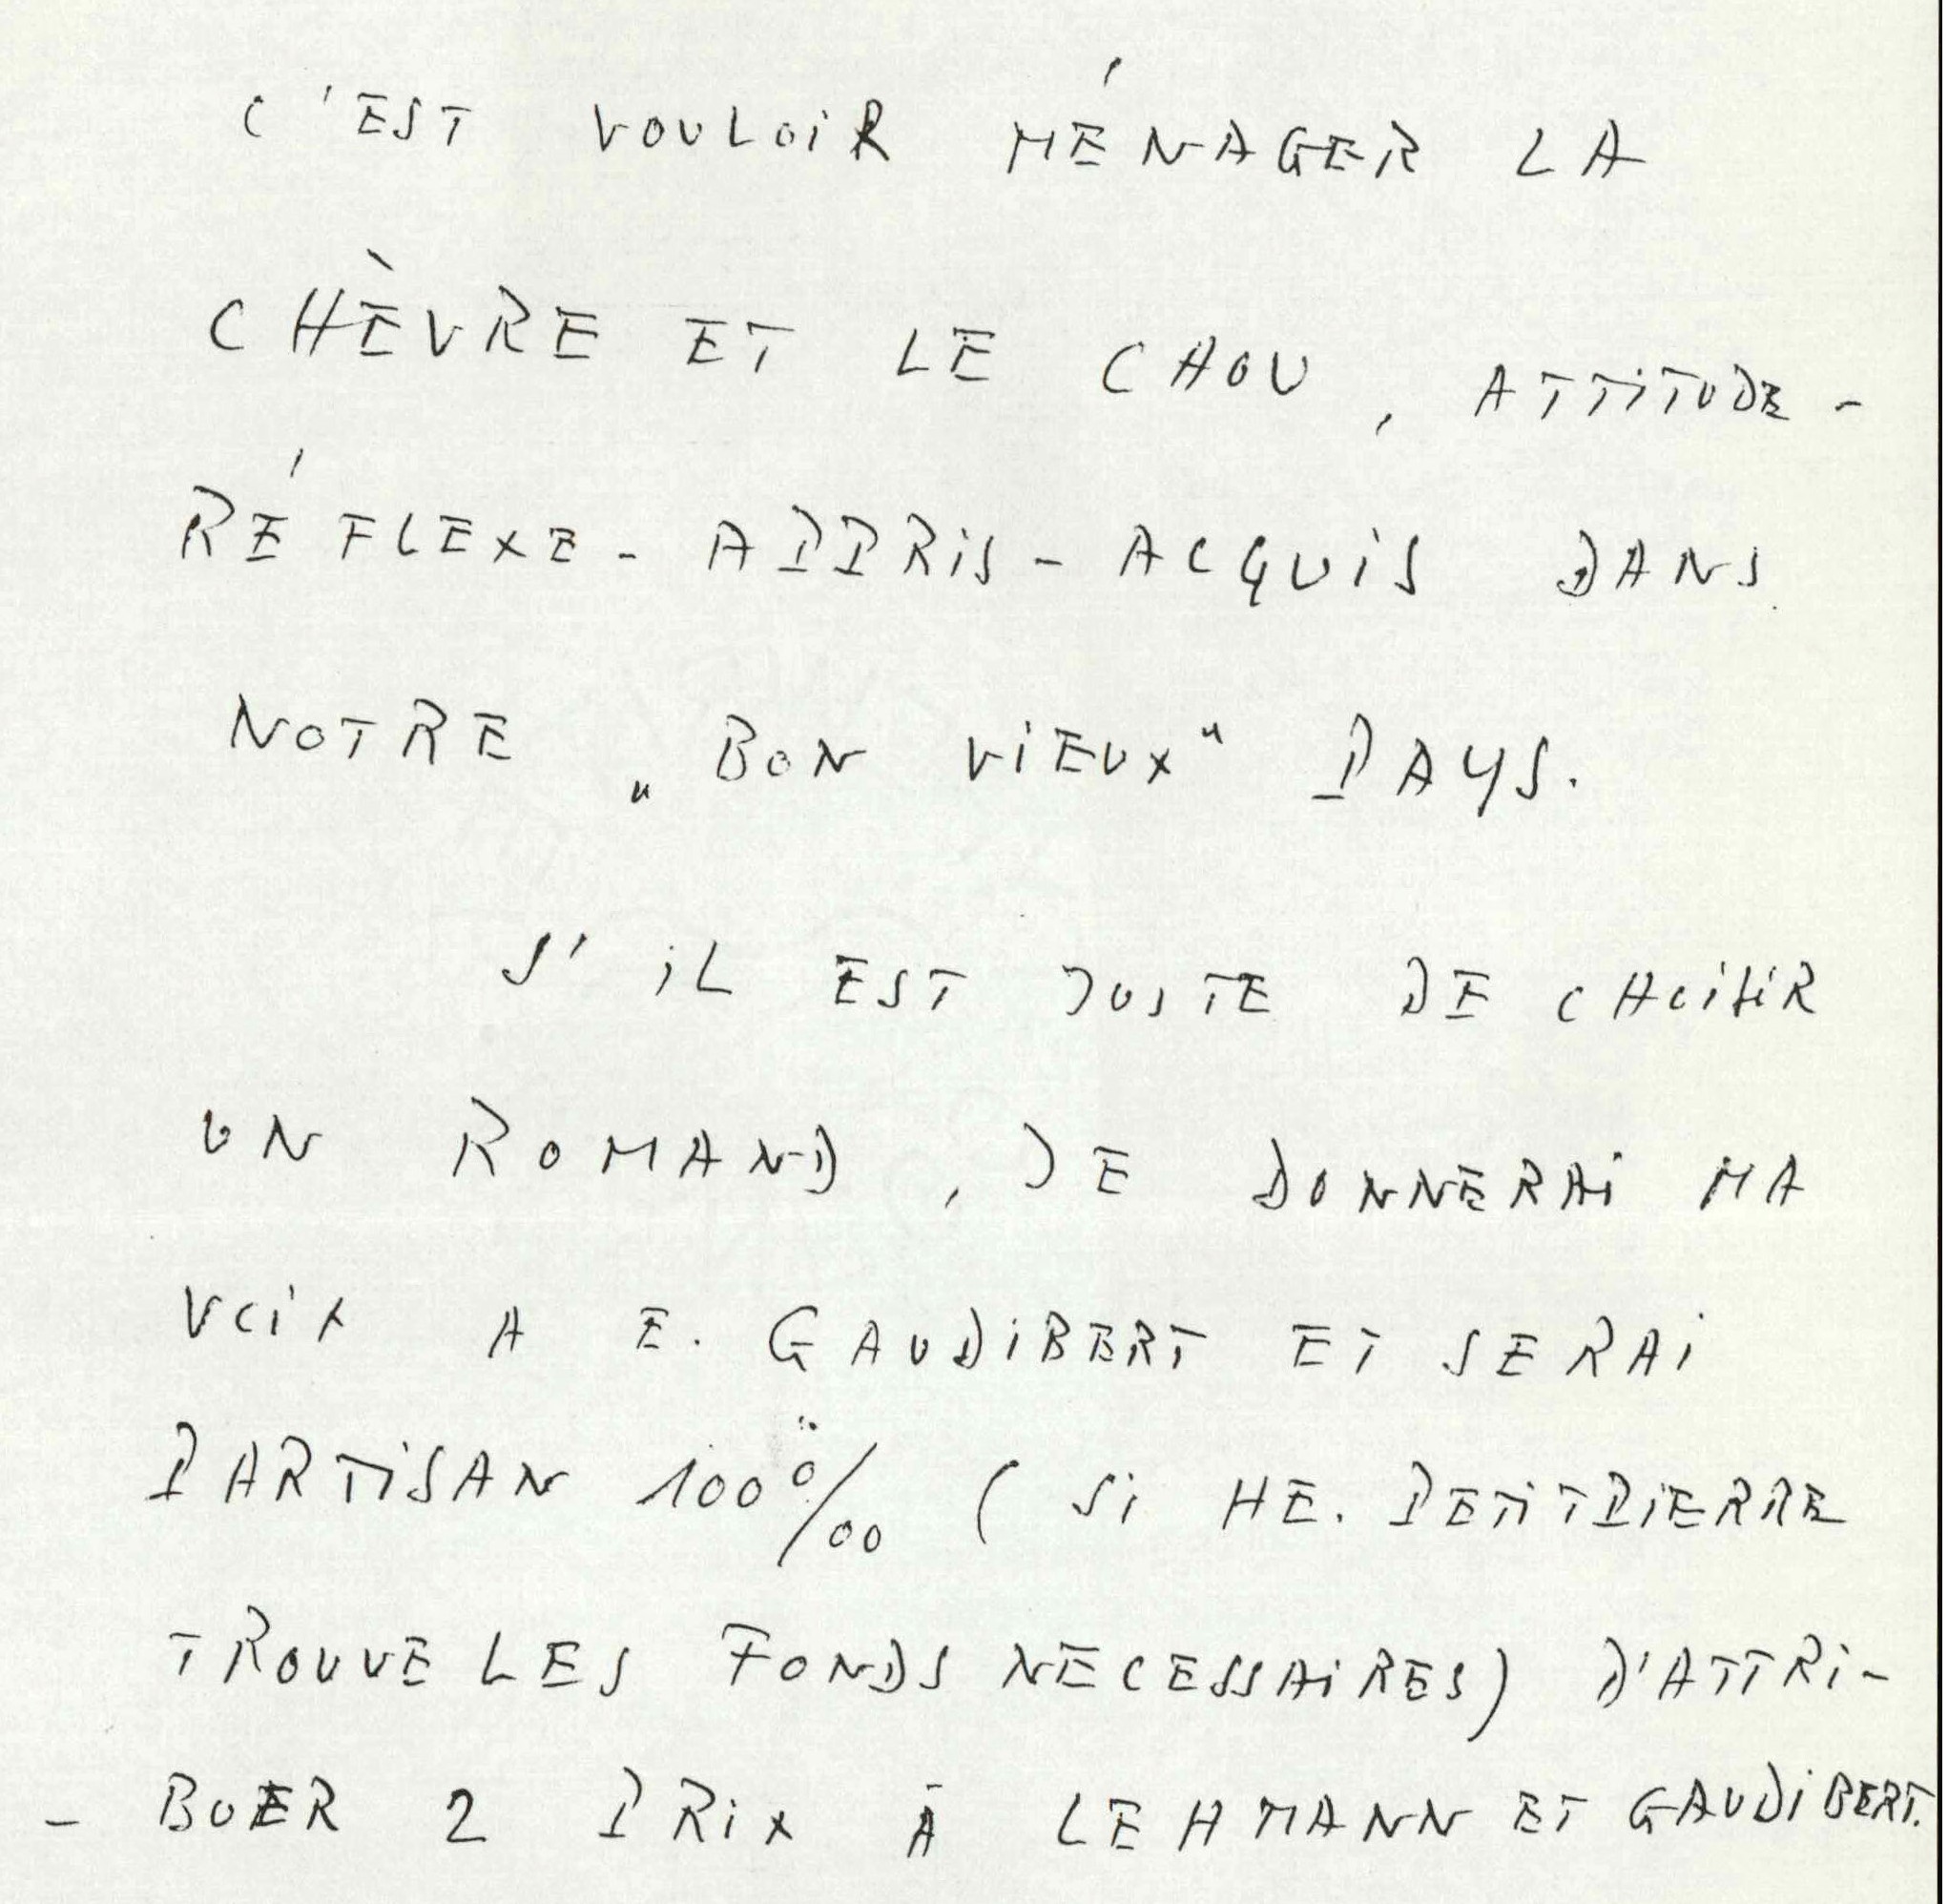 C'EST VOULOIR MÉNAGER LA
CHÈVRE ET LE CHOU, ATTITUDE-
RÉFLEXE-APPRIS-ACQUIS DANS
NOTRE „BON VIEUX“ PAYS.
S'IL EST JUSTE DE CHOISIR
UN ROMAND, JE DONNERAI MA
VOIX A E. GAUDIBERT ET SERAI
PARTISAN 100‰ (SI HE. PETITPIERRE
TROUVE LES FONDS NECESSAIRES) D'ATTRI-
- BUER 2 PRIX À LEHMANN ET GAUDIBERT.